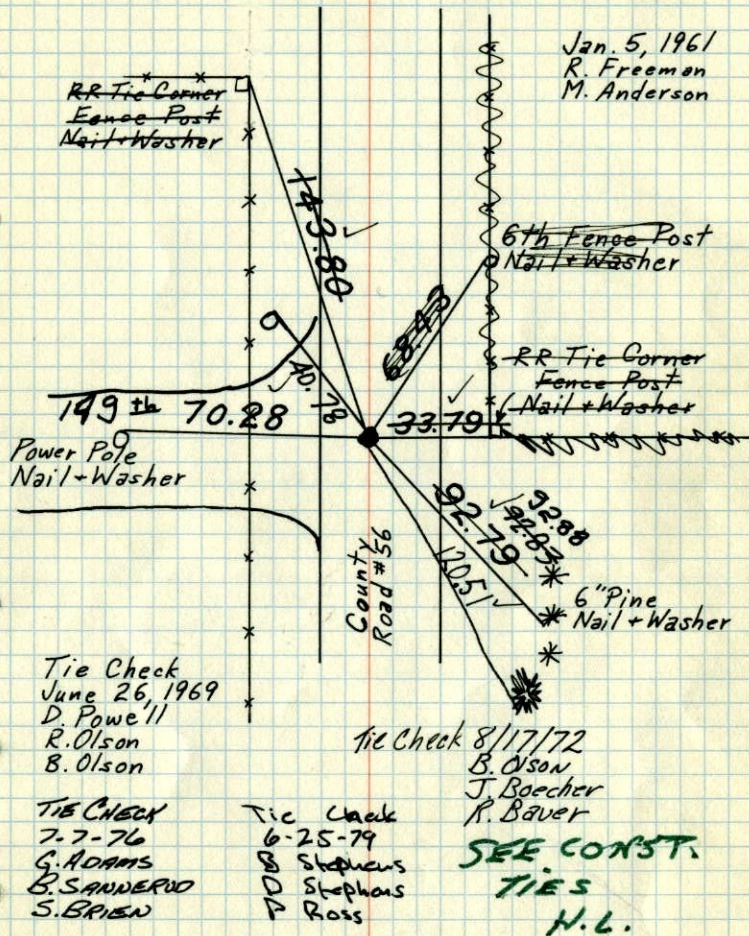 Jan. 5, 1961
R. Freeman
M. Anderson
RR Tie Corner
Fence Post
Nail + Washer
143.80
6th Fence Post
Nail + Washer
68.43
RR Tie Corner
Fence Post
Nail + Washer
40.78
149th
70.28
33.79
Power Pole
Nail + Washer
92.88
92.83
92.79
120.51
County
Road #56
6" Pine
Nail + Washer
Tie Check
June 26, 1969
D. Powell
R. Olson
B. Olson
Tie Check 8/17/72
B. Olson
J. Boecher
R. Bauer
TIE CHECK
7-7-76
G. ADAMS
B. SANNERUD
S. BRIEN
Tie Check
6-25-79
B Stephens
D Stephens
P Ross
SEE CONST.
TIES
H.L.